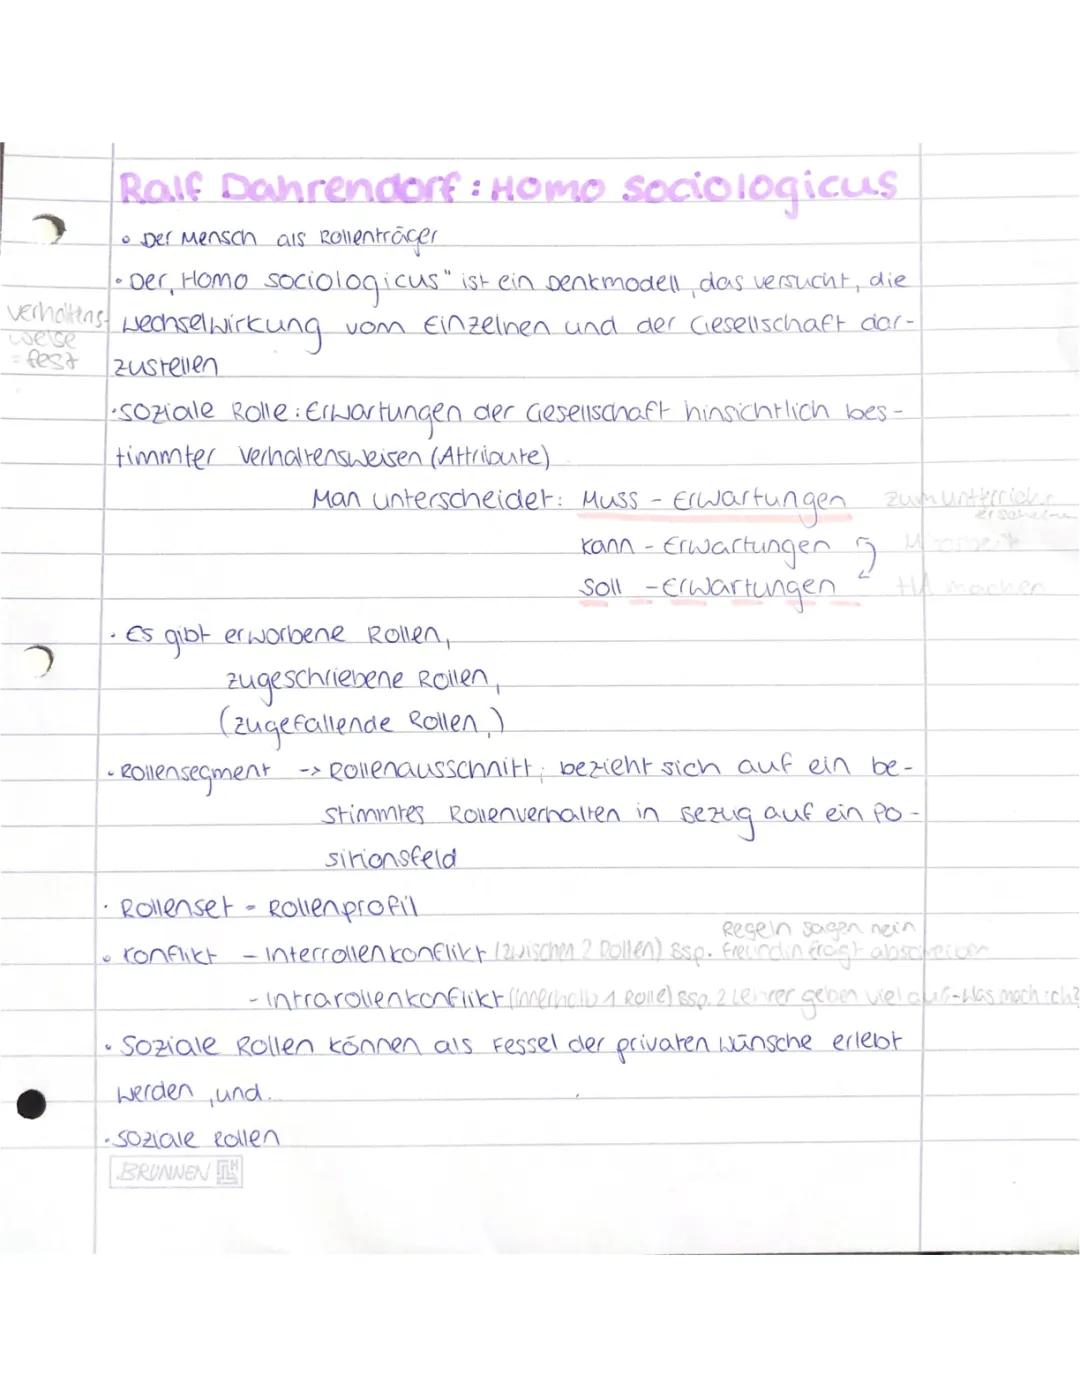 Ralf Dahrendorf: Homo sociologicus
• Der Mensch als Rollenträger
• Der „Homo sociologicus" ist ein Denkmodell, das versucht, die
Verhaltens-
weise
= fest
Wechselwirkung vom Einzelnen und der Gesellschaft dar-
zustellen
• Soziale Rolle: Erwartungen der Gesellschaft hinsichtlich bes-
timmter Verhaltensweisen (Attribute)
Man unterscheidet: Muss - Erwartungen zum Unterricht
erscheinen
Kann - Erwartungen Mitarbeit
Soll - Erwartungen HA machen
• Es gibt erworbene Rollen,
zugeschriebene Rollen,
(zugefallende Rollen,)
• Rollensegment -> Rollenausschnitt; bezieht sich auf ein be-
stimmtes Rollenverhalten in Bezug auf ein Po-
sitionsfeld
• Rollenset - Rollenprofil
Regeln sagen nein
• Konflikt - Interrollenkonflikt (zwischen 2 Rollen) Bsp. Freundin fragt abschreiben
- Intrarollenkonflikt (innerhalb 1 Rolle) Bsp. 2 Lehrer geben viel auf - Was mach ich?
• Soziale Rollen können als Fessel der privaten Wünsche erlebt
werden, und.
• Soziale Rollen
BRUNNEN